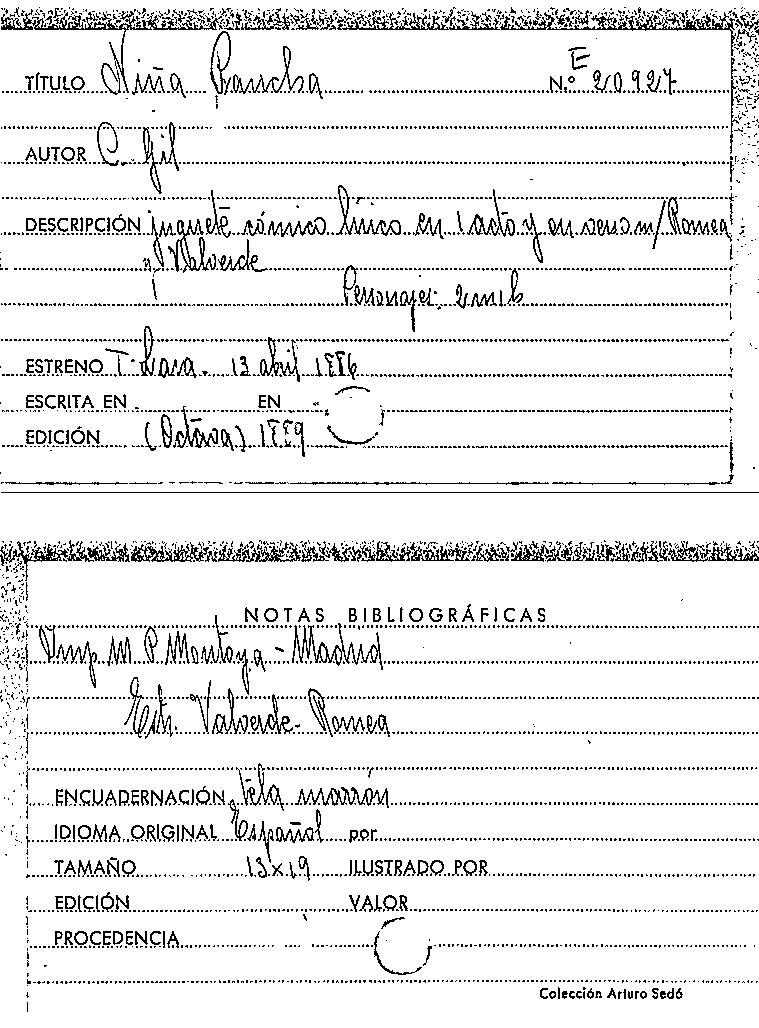 TÍTULO Niña Pancha N.º E 20927
AUTOR C. Gil
DESCRIPCIÓN juguete cómico lírico en 1 acto y en verso m/ Romea
y Valverde
Personajes: 2m1h
ESTRENO T. Lara. 13 abril 1886
ESCRITA EN EN
EDICIÓN (Octava) 1889
NOTAS BIBLIOGRÁFICAS
Imp M P Montoya - Madrid
Valverde - Romea
ENCUADERNACIÓN tela marrón
IDIOMA ORIGINAL Español por
TAMAÑO 13x19 ILUSTRADO POR
EDICIÓN VALOR
PROCEDENCIA
Colección Arturo Sedó